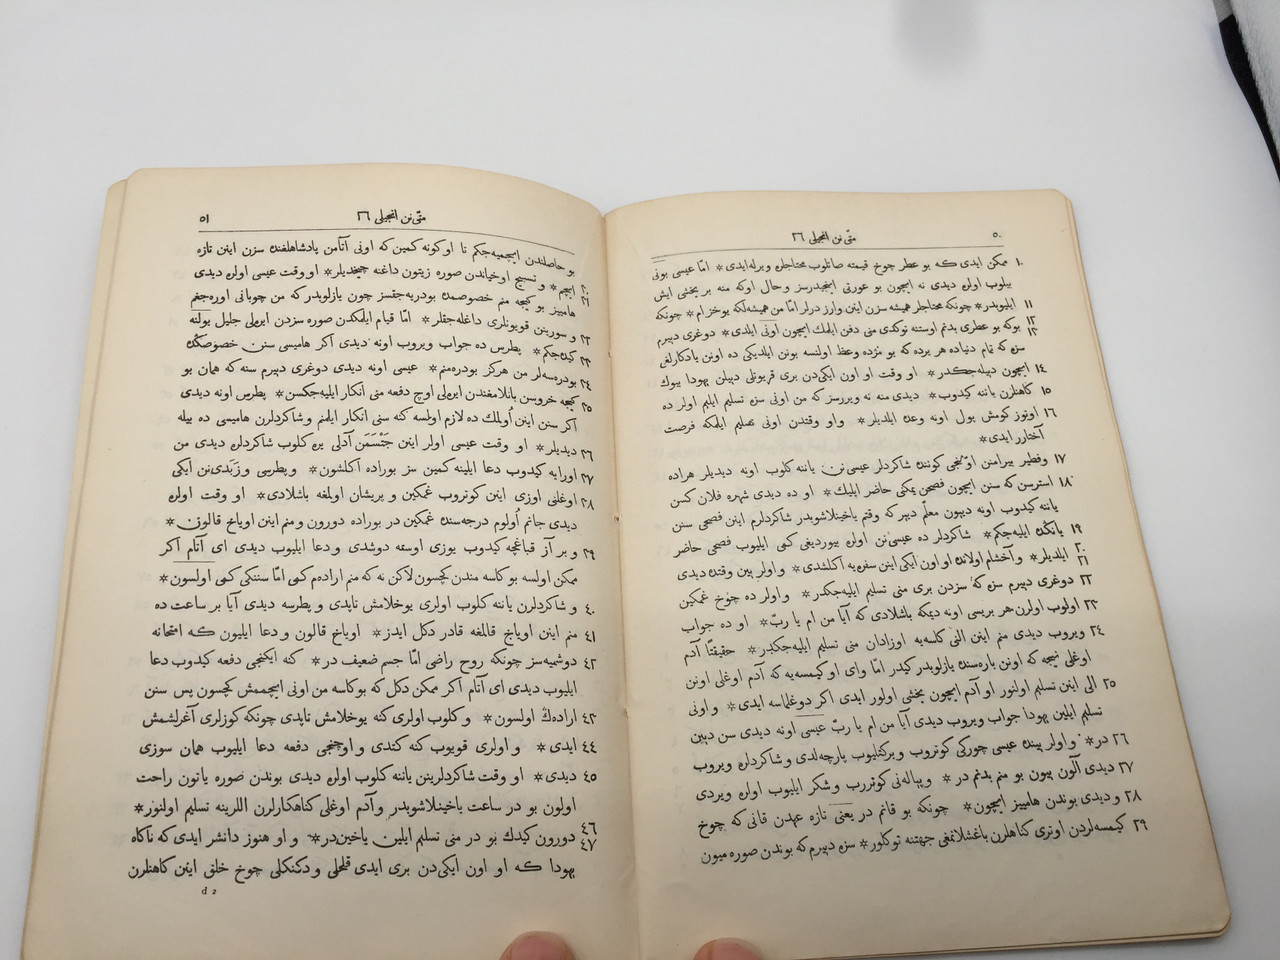 ۵۰
متّی‌نن انجیلی ۲۶
۱۰ ممکن ایدی که بو عطر چوخ قیمته صاتلوب محتاجلره ویرله‌ایدی * امّا عیسی بونی
بیلوب اولره دیدی نه ایچون بو عورتی اینجیدرسز و حال اوکه منه بر یخشی ایش
۱۱ ایلیوبدر * چونکه محتاجلر همیشه سزن اینن وارز درلر امّا من همیشه‌لکه یوخزام * چونکه
۱۲ بوکه بو عطری بدنم اوستنه توکدی منی دفن ایلمك ایچون اونی ایلدی * دوغری دیپرم
۱۳ سزه که تمام دنیاده هر یرده که بو مژده وعظ اولنسه بونن ایلدیکی ده اونن یادکارلغی
۱۴ ایچون دیپله‌جکدر * او وقت او اون ایکی‌دن بری قریوتلی دیپلن یهودا بیوك
۱۵ کاهنلرن یاننه کیدوب * دیدی منه نه ویررسز که من اونی سزه تسلیم ایلیم اولر ده
۱۶ اوتوز کومش پول اونه وعده ایلدیلر * و او وقتدن اونی تسلیم ایلمکه فرصت
آختارر ایدی *
۱۷ وفطیر بیرامنن اوّلنجی کوننده شاکردلر عیسی‌نن یاننه کلوب اونه دیدیلر هراده
۱۸ استرسن که سنن ایچون فصحن یمکی حاضر ایلیك * او ده دیدی شهره فلان کسن
یاننه کیدوب اونه دیپون معلم دیپر که وقتم یاخینلاشوبدر شاکردلرم اینن فصحی سنن
۱۹ یانکده ایلیه‌جکم * شاکردلر ده عیسی‌نن اولره بیوردیغی کمی ایلیوب فصحی حاضر
۲۰ ایلدیلر * و آخشام اولانده او اون ایکی اینن سفره‌یه اکلشدی * و اولر یین وقتده دیدی
۲۱ دوغری دیپرم سزه که سزدن بری منی تسلیم ایلیه‌جکدر * و اولر ده چوخ غمکین
۲۲ اولوب اولرن هر بریسی اونه دیمکه باشلادی که آیا من ام یا ربّ * او ده جواب
۲۳ ویروب دیدی منم اینن النی کاسه‌یه اوزادان منی تسلیم ایلیه‌جکدر * حقیقتًا آدم
۲۴ اوغلی نیجه که اونن باره‌سنده یازلوبدر کیدر امّا وای او کیمسه‌یه که آدم اوغلی اونن
الی اینن تسلیم اولنور او آدم ایچون یخشی اولور ایدی اکر دوغلماسه ایدی * و اونی
۲۵ تسلیم ایلین یهودا جواب ویروب دیدی آیا من ام یا ربّ عیسی اونه دیدی سن دیپن
۲۶ در * و اولر ییننده عیسی چورکی کوتروب و برکتلیوب پارچه‌لدی و شاکردلره ویروب
۲۷ دیدی آلون ییون بو منم بدنم در * و پیاله‌نی کوتررب و شکر ایلیوب اولره ویردی
۲۸ و دیدی بوندن هامییز ایچون * چونکه بو قانم در یعنی تازه عهدن قانی که چوخ
۲۹ کیمسه‌لردن اوتری کناهلرن باغشلانغی جهتنه توکلور * سزه دیپرم که بوندن صوره میون
۵۱
متّی‌نن انجیلی ۲۶
بو حاصلندن ایچمیه‌جکم تا او کونه کمین که اونی آتامن پادشاهلغنده سزن اینن تازه
۳۰ ایچم * و تسبیح اوخیاندن صوره زیتون داغنه چیخدیلر * او وقت عیسی اولره دیدی
۳۱ هامییز بو کیجه منم خصوصمده بودریه‌جقسز چون یازلوبدر که من چوبانی اوره‌جغم
۳۲ و سورینن قویونلری داغله‌جقلر * امّا قیام ایلمکدن صوره سزدن ایره‌لی جلیل یولنه
۳۳ کیده‌جکم * پطرس ده جواب ویروب اونه دیدی اکر هامیسی سنن خصوصکده
۳۴ بودره‌سه‌لر من هرکز بودره‌منم * عیسی اونه دیدی دوغری دیپرم سنه که همان بو
۳۵ کیجه خروسن بانلامغندن ایره‌لی اوچ دفعه منی انکار ایلیه‌جکسن * پطرس اونه دیدی
اکر سنن اینن اُولمك ده لازم اولسه کنه سنی انکار ایلمنم و شاکردلرن هامیسی ده بیله
۳۶ دیدیلر * او وقت عیسی اولر اینن جَتْسَمَن آدلی یره کلوب شاکردلره دیدی من
۳۷ اورایه کیدوب دعا ایلینه کمین سز بوراده اکلشون * و پطرسی و زَبَدی‌نن ایکی
۳۸ اوغلنی اوزی اینن کوتروب غمکین و پریشان اولمغه باشلادی * او وقت اولره
دیدی جانم اُولوم درجه‌سنده غمکین در بوراده دورون و منم اینن اویاخ قالون *
۳۹ و بر آز قباغجه کیدوب یوزی اوسته دوشدی و دعا ایلیوب دیدی ای آتام اکر
ممکن اولسه بو کاسه مندن کچسون لاکن نه که منم اراده‌م کمی امّا سننکی کمی اولسون *
۴۰ و شاکردلرن یاننه کلوب اولری یوخلامش تاپدی و پطرسه دیدی آیا بر ساعت ده
۴۱ منم اینن اویاخ قالمغه قادر دکل ایدز * اویاخ قالون و دعا ایلیون که امتحانه
۴۲ دوشمیه‌سز چونکه روح راضی امّا جسم ضعیف در * کنه ایکنجی دفعه کیدوب دعا
ایلیوب دیدی ای آتام اکر ممکن دکل که بو کاسه من اونی ایچممش کچسون پس سنن
۴۳ اراده‌ك اولسون * و کلوب اولری کنه یوخلامش تاپدی چونکه کوزلری آغرلشمش
۴۴ ایدی * و اولری قویوب کنه کتدی و اوچنجی دفعه دعا ایلیوب همان سوزی
۴۵ دیدی * او وقت شاکردلرینن یاننه کلوب اولره دیدی بوندن صوره یاتون راحت
اولون بو در ساعت یاخینلاشوبدر و آدم اوغلی کناهکارلرن اللرینه تسلیم اولنور *
۴۶ دورون کیدك بو در منی تسلیم ایلین یاخین‌در * و او هنوز دانشر ایدی که ناکاه
۴۷ یهودا که او اون ایکی‌دن بری ایدی قلجلی و دکنکلی چوخ خلق اینن کاهنلرن
d 2